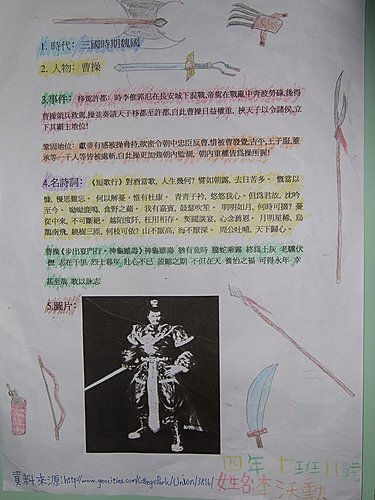 1. 時代: 三國時期魏國
2. 人物: 曹操
3.事件: 移駕許都: 時李傕郭汜在長安城下混戰,帝駕在戰亂中奔波勞碌,後得
曹操領兵救駕,操並奏請天子移都至許都,自此曹操日益權重, 挾天子以令諸侯,立
下其霸主地位!
鞏固地位: 獻帝有感被操脅持,故密令朝中忠臣反曹,惜被曹發覺,吉平,王子服,董
承等一干人等皆被處斬,自此操更加強朝內監測, 朝內重權皆爲操所握!
4.名詩詞: 《短歌行》對酒當歌, 人生幾何? 譬如朝露, 去日苦多。 慨當以
慷, 憂思難忘。 何以解憂, 惟有杜康。 青青子衿, 悠悠我心。但爲君故, 沈吟
至今。 呦呦鹿鳴, 食野之蘋。 我有嘉賓, 鼓瑟吹笙。 明明如月, 何時可掇? 憂
從中來, 不可斷絕。 越陌度阡, 枉用相存。 契闊談宴, 心念舊恩。 月明星稀, 烏
鵲南飛, 繞樹三匝, 何枝可依? 山不厭高, 海不厭深。 周公吐哺, 天下歸心。
曹操《步出夏門行‧神龜雖壽》神龜雖壽 猶有竟時 騰蛇乘霧 終爲土灰 老驥伏
櫪 志在千里 烈士暮年 壯心不已 盈縮之期 不但在天 養怡之福 可得永年 幸
甚至哉 歌以詠志
5.圖片:
四年 七班 11號
資料來源:http://www.geocities.com/CollegePark/Union/3616/